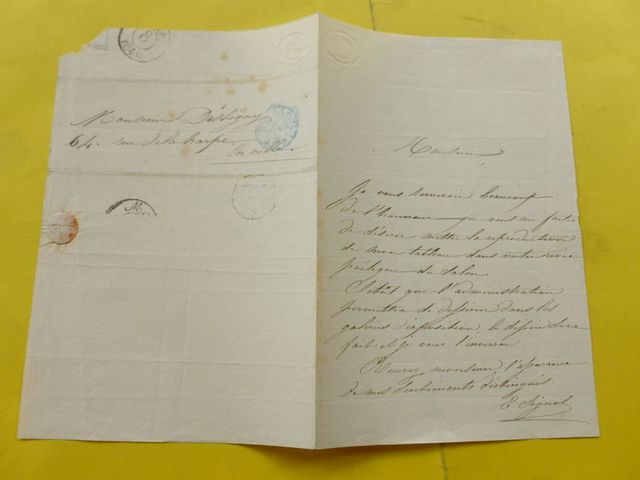 Monsieur Destigny
64. rue de la harpe
En ville.
Monsieur,
Je vous remercie beaucoup
de l'honneur que vous me faites
de désirer mettre la reproduction
de mon tableau dans votre revue
poétique du Salon.
Sitôt que l'administration
permettra de dessiner dans les
galeries d'exposition, le dessin sera
fait et je vous l'enverrai.
Recevez, monsieur, l'assurance
de mes sentiments distingués
E Signol